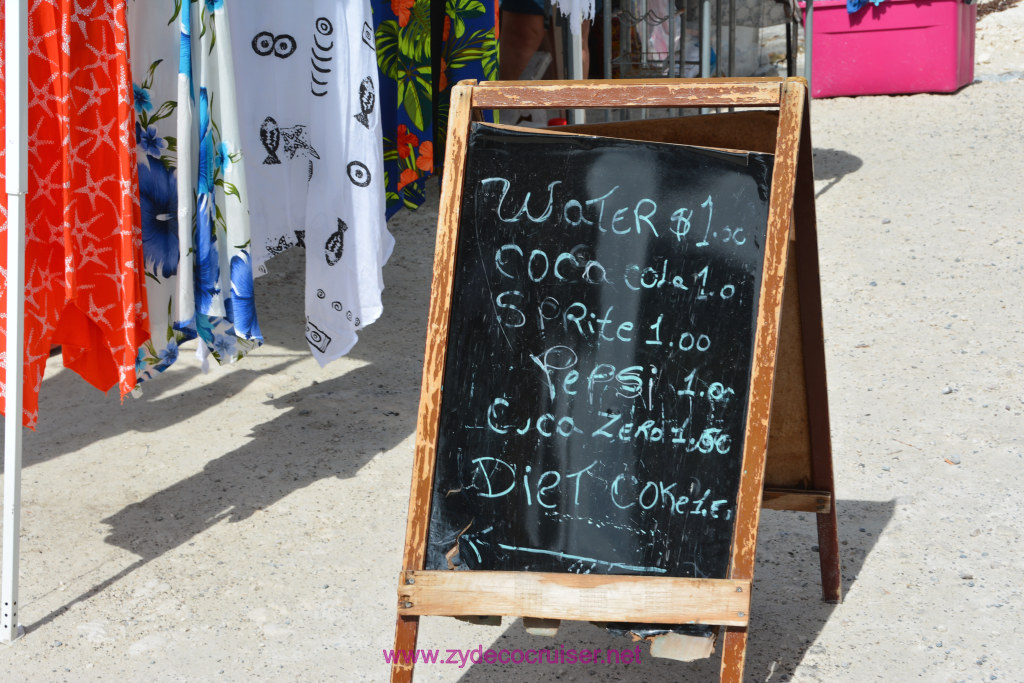 WATER $1.50
COCA cola 1.0
SPRite 1.00
Pepsi 1.00
Coca ZERO 1.50
DieT COKe
www.zydecocruiser.net